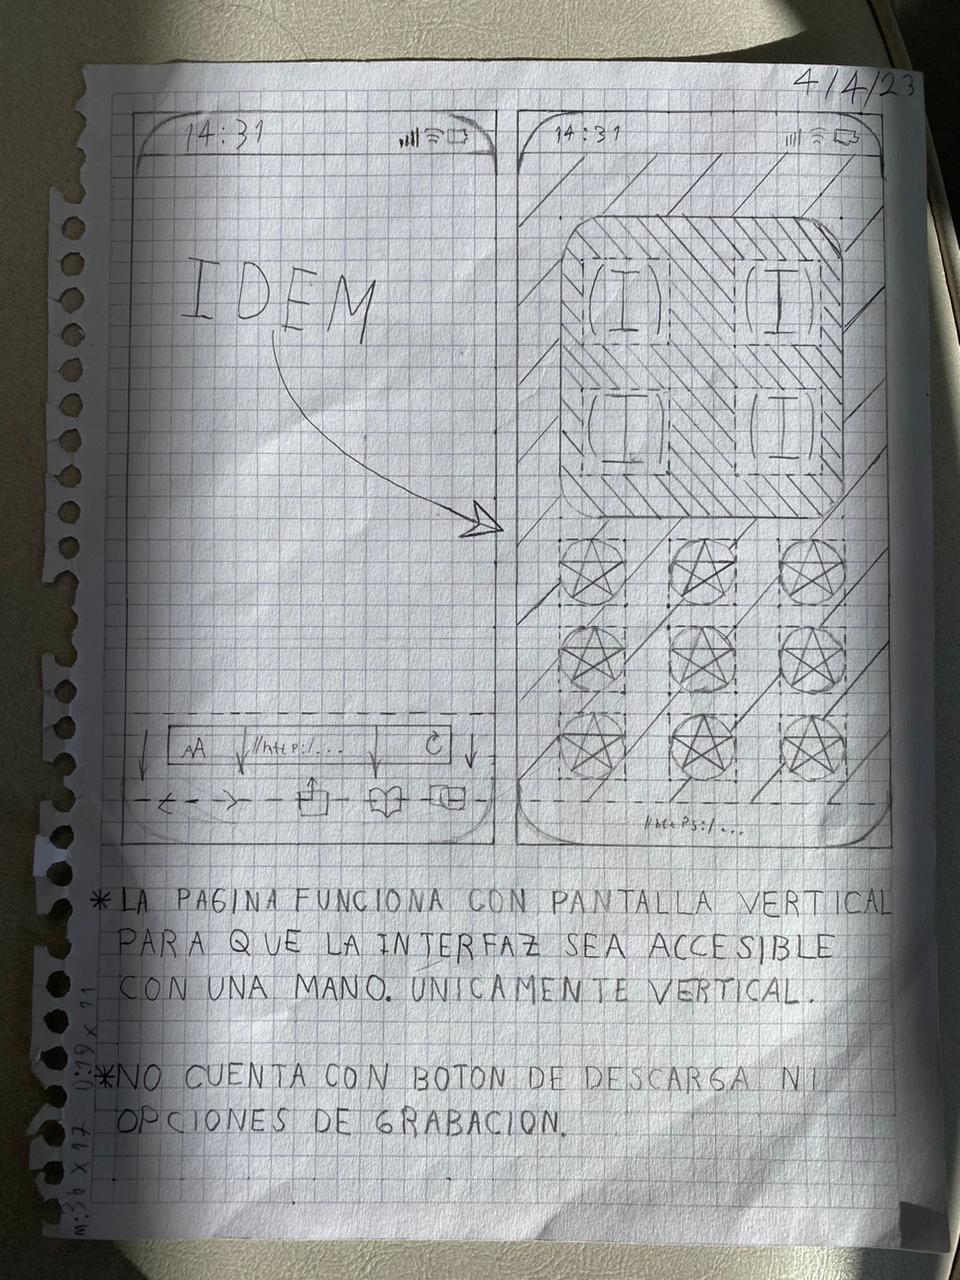 4/4/23
14:31
14:31
IDEM
(I) (I)
(I) (I)
AA //http:/...
//https:/...
* LA PAGINA FUNCIONA CON PANTALLA VERTICAL
PARA QUE LA INTERFAZ SEA ACCESIBLE
CON UNA MANO. UNICAMENTE VERTICAL.
*NO CUENTA CON BOTON DE DESCARGA NI
OPCIONES DE GRABACION.
m:36 x 17 D:19 x 11